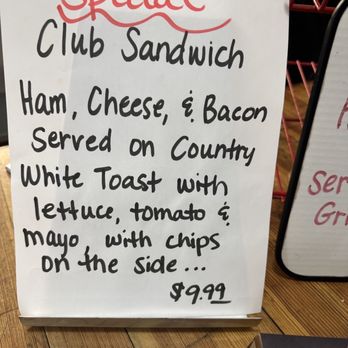 Special
Club Sandwich
Ham, Cheese, & Bacon
Served on Country
White Toast with
lettuce, tomato &
mayo, with chips
on the side...
$9.99